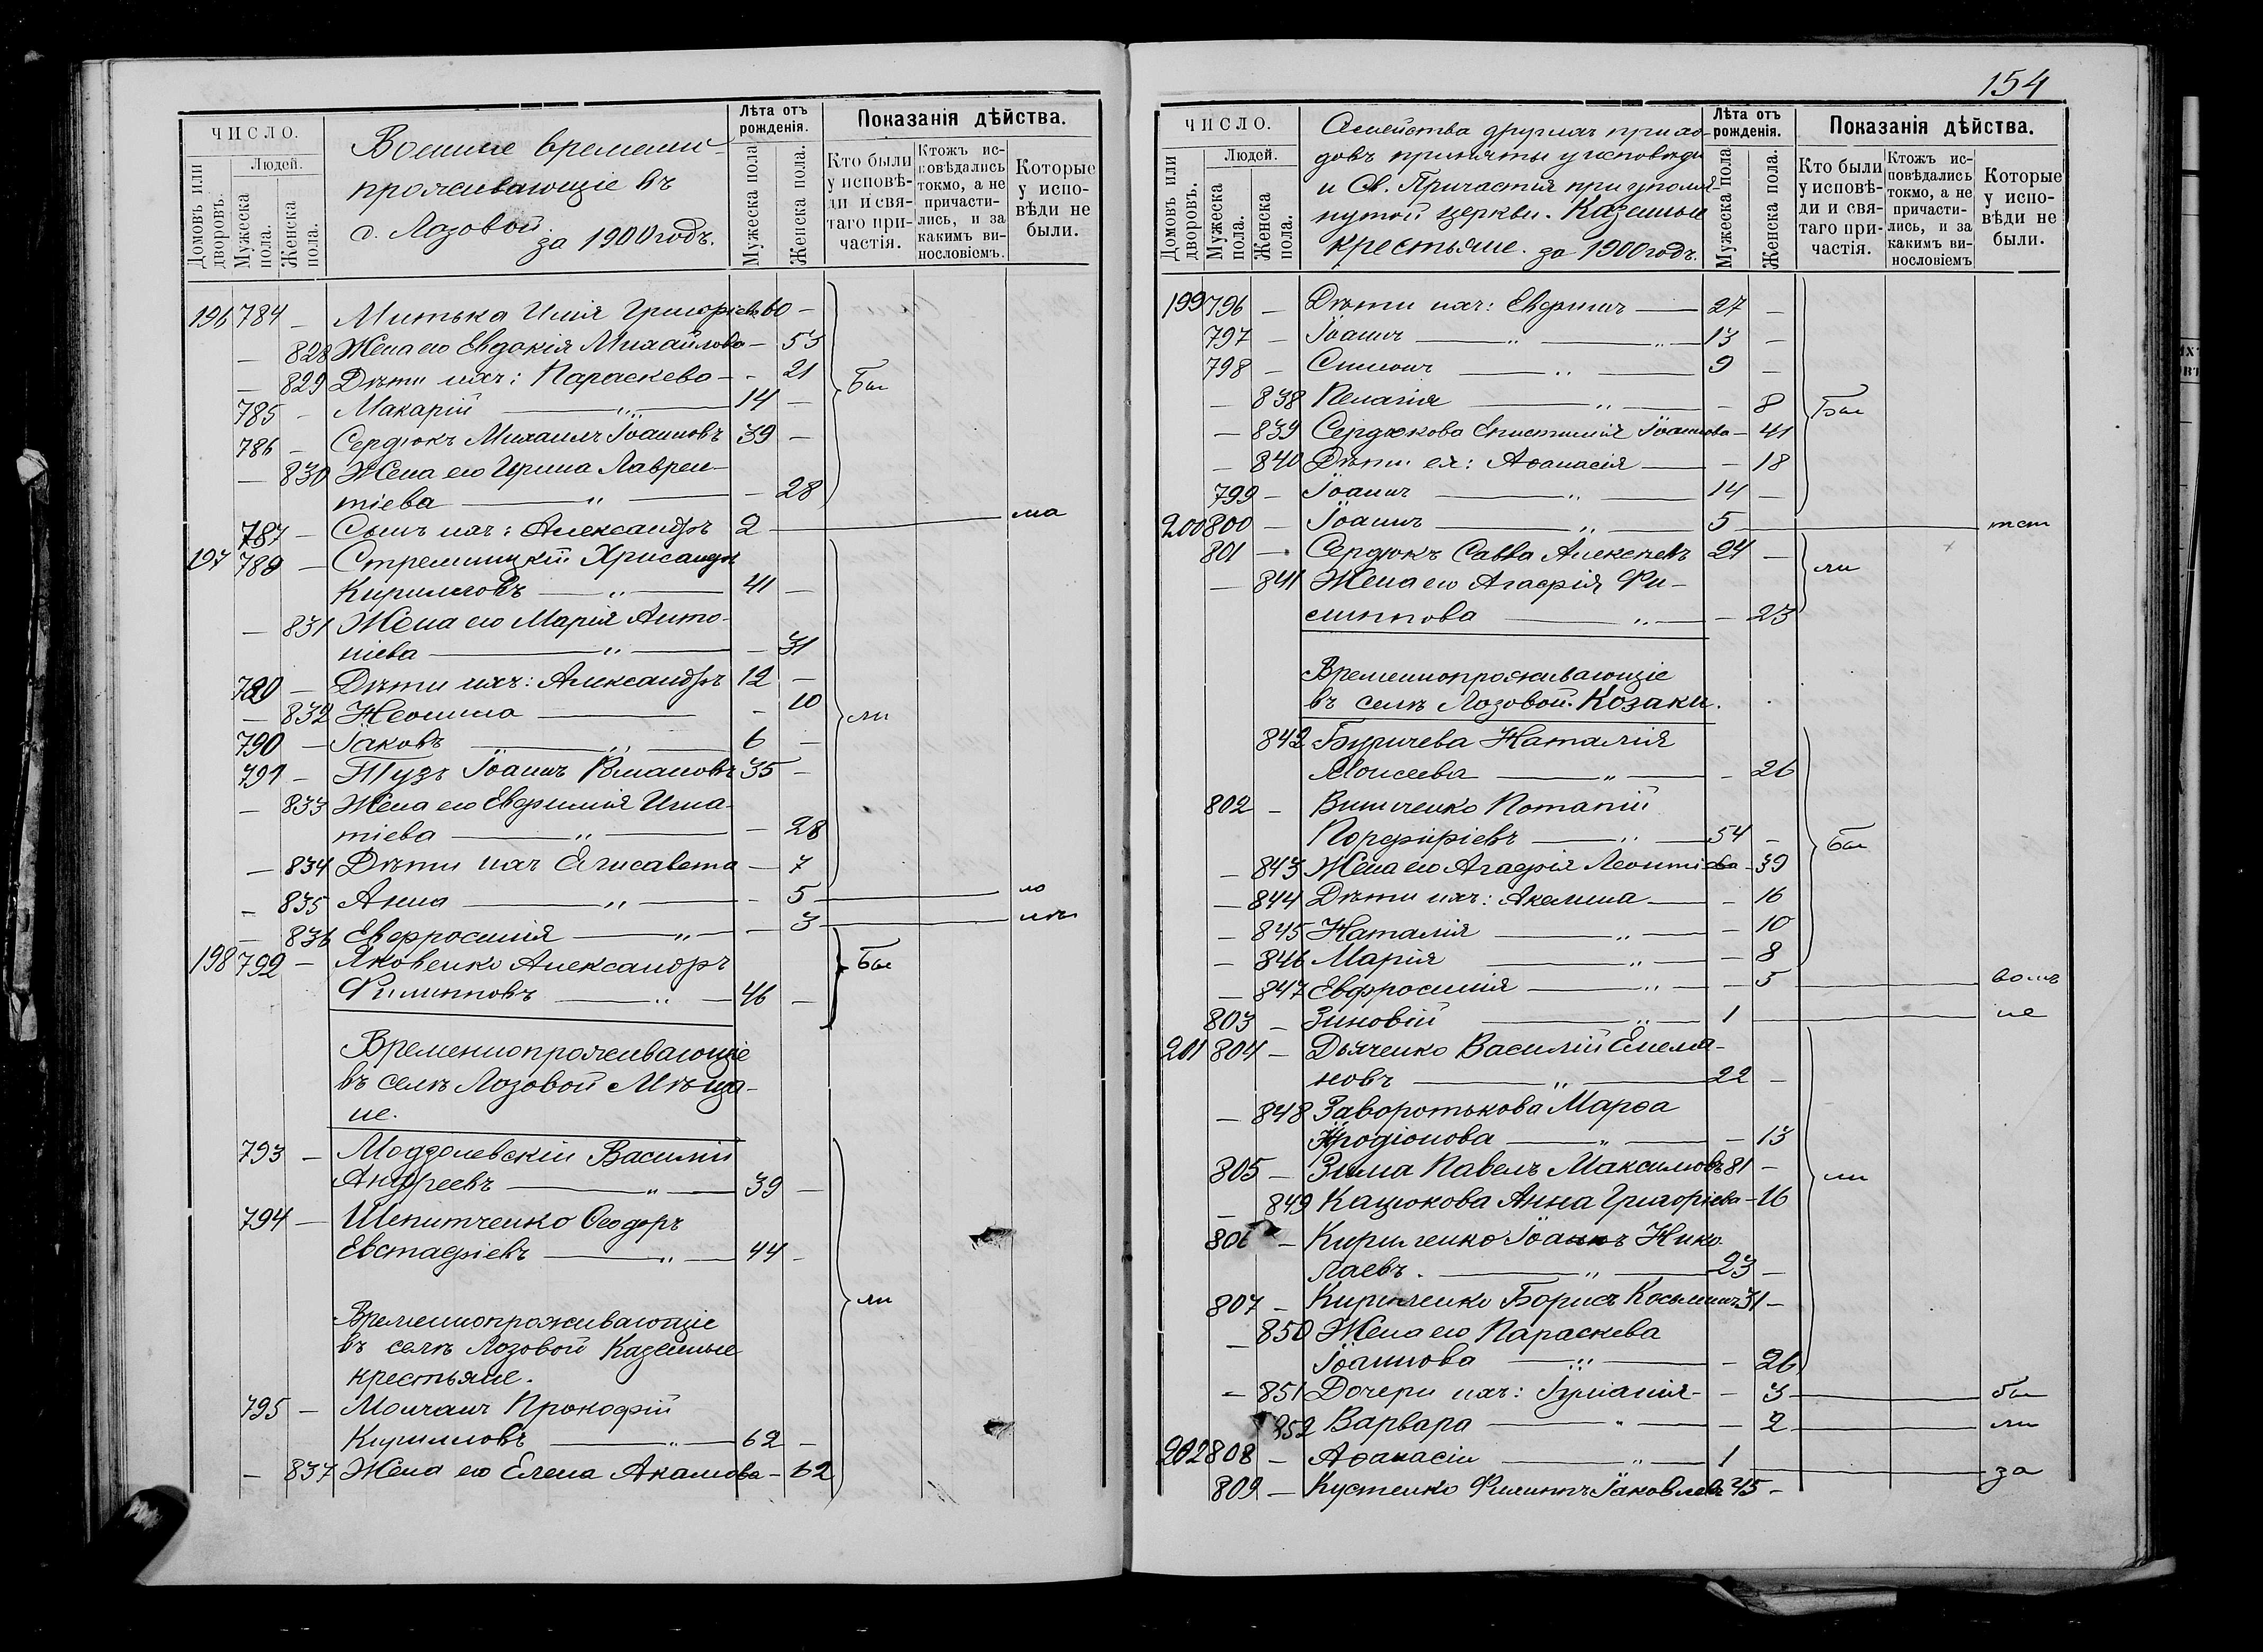 ЧИСЛО.
Людей.
Домовъ или дворовъ.
Мужеска пола.
Женска пола.
Военные времени-
проживающіе въ
с. Лозовой.
за 1900 годъ.
Лѣта отъ рожденія.
Мужеска пола
Женска пола.
Показанія дѣйства.
Кто были у исповѣ-ди и свя-таго при-частія.
Ктожъ ис-повѣдались токмо, а не причасти-лись, и за какимъ ви-нословіемъ.
Которые у испо-вѣди не были.
196 784 - Митька Илія Григоріевъ 60 -
- 828 Жена его Евдокія Михайлова - 53
- 829 Дѣти ихъ: Параскева - - 21 Бы
785 - Макарій 14 -
786 - Сердюкъ Михаилъ Іоанновъ 39 -
- 830 Жена его Ирина Лаврен-
тіева - 28
787 - Сынъ ихъ: Александръ 2 - ма
197 789 - Стремицкій Хрисанфъ
Кирилловъ 41 -
- 831 Жена его Марія Анто-
ніева - 31
789 - Дѣти ихъ: Александръ 12 -
- 832 Неонила - 10 ли
790 - Іаковъ 6 -
791 - Тузъ Іоаннъ Романовъ 35 -
- 833 Жена его Евфимія Игна-
тіева - 28
- 834 Дѣти ихъ Елисавета - 7
- 835 Анна - 5 ло
- 836 Евфросинія - 3 лѣт
198 792 - Яковенко Александръ Бы
Филипповъ 46 -
Временнопроживающіе
въ селѣ Лозовой Мѣща-
не.
793 - Моддолевскій Василій
Андреевъ 39 -
794 - Шпитченко Ѳеодоръ
Евстафіевъ 44 -
ли
Временнопроживающіе
въ селѣ Лозовой Казенные
крестьяне.
795 - Молчанъ Прокофій
Кирилловъ 62 -
- 837 Жена его Елена Акимова - 62
154
ЧИСЛО.
Людей.
Домовъ или дворовъ.
Мужеска пола.
Женска пола.
Семейства другихъ прихо-
довъ приняты у исповѣди
и Св. Причастія при упомя-
нутой церкви. Казенные
крестьяне. за 1900 годъ.
Лѣта отъ рожденія.
Мужеска пола
Женска пола.
Показанія дѣйства.
Кто были у исповѣ-ди и свя-таго при-частія.
Ктожъ ис-повѣдались токмо, а не причасти-лись, и за какимъ ви-нословіемъ
Которые у испо-вѣди не были.
199 796 - Дѣти ихъ: Евфимъ 27 -
797 - Іоаннъ 13 -
798 - Симеонъ 9 -
- 838 Пелагія - 8 Бы
- 839 Сердюкова Епистимія Іоаннова - 41
- 840 Дѣти ея: Аѳанасія - 18
799 - Іоаннъ 14 -
200 800 - Іоаннъ 5 - тст
801 - Сердюкъ Савва Алексѣевъ 24 -
- 841 Жена его Агафія Фи- ли
липпова - 23
Временнопроживающіе
въ селѣ Лозовой. Козаки.
842 Бурчева Наталія
Моисеева - 26
802 - Винниченко Потапій
Порфиріевъ 54 - Бы
- 843 Жена его Агафія Леонтіева - 39
- 844 Дѣти ихъ: Акилина - 16
- 845 Наталія - 10
- 846 Марія - 8
- 847 Евфросинія - 5
803 - Зиновій 1 не
201 804 - Дьяченко Василій Емелья-
новъ 22 -
- 848 Заворотькова Марѳа
Иродіонова - 13
805 - Зима Павелъ Максимовъ 81 - ли
- 849 Кацюкова Анна Григоріева - 16
806 - Кириченко Іоаннъ Нико-
лаевъ. 23 -
807 - Кириленко Борисъ Косьминъ 31 -
- 850 Жена его Параскева
Іоаннова - 26
- 851 Дочери ихъ: Іуліанія - - 3 бы
852 Варвара - 2 ли
202 808 - Аѳанасій 1 за
809 - Кустенко Филиппъ Іаковлевъ 45 -